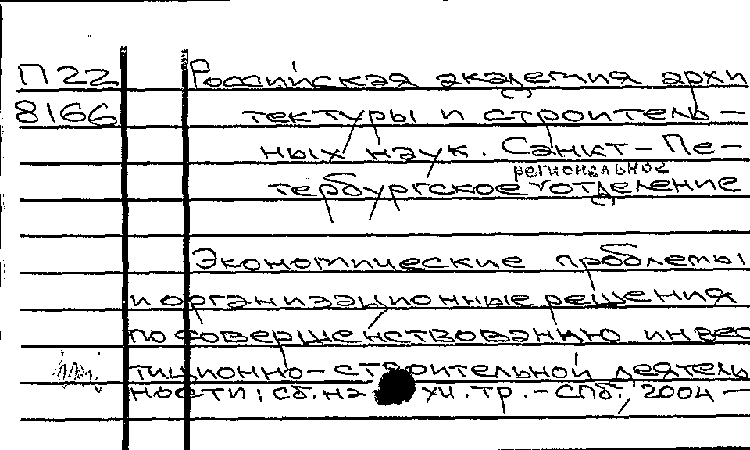 П22 Российская академия архи
8166 тектуры и строитель-
ных наук. Санкт-Пе-
региональное
тербургское отделение
Экономические проблемы
и организационные решения
по совершенствованию инвес
тиционно-строительной деятель
ности: сб. на уч. тр. - СПб., 2004 -